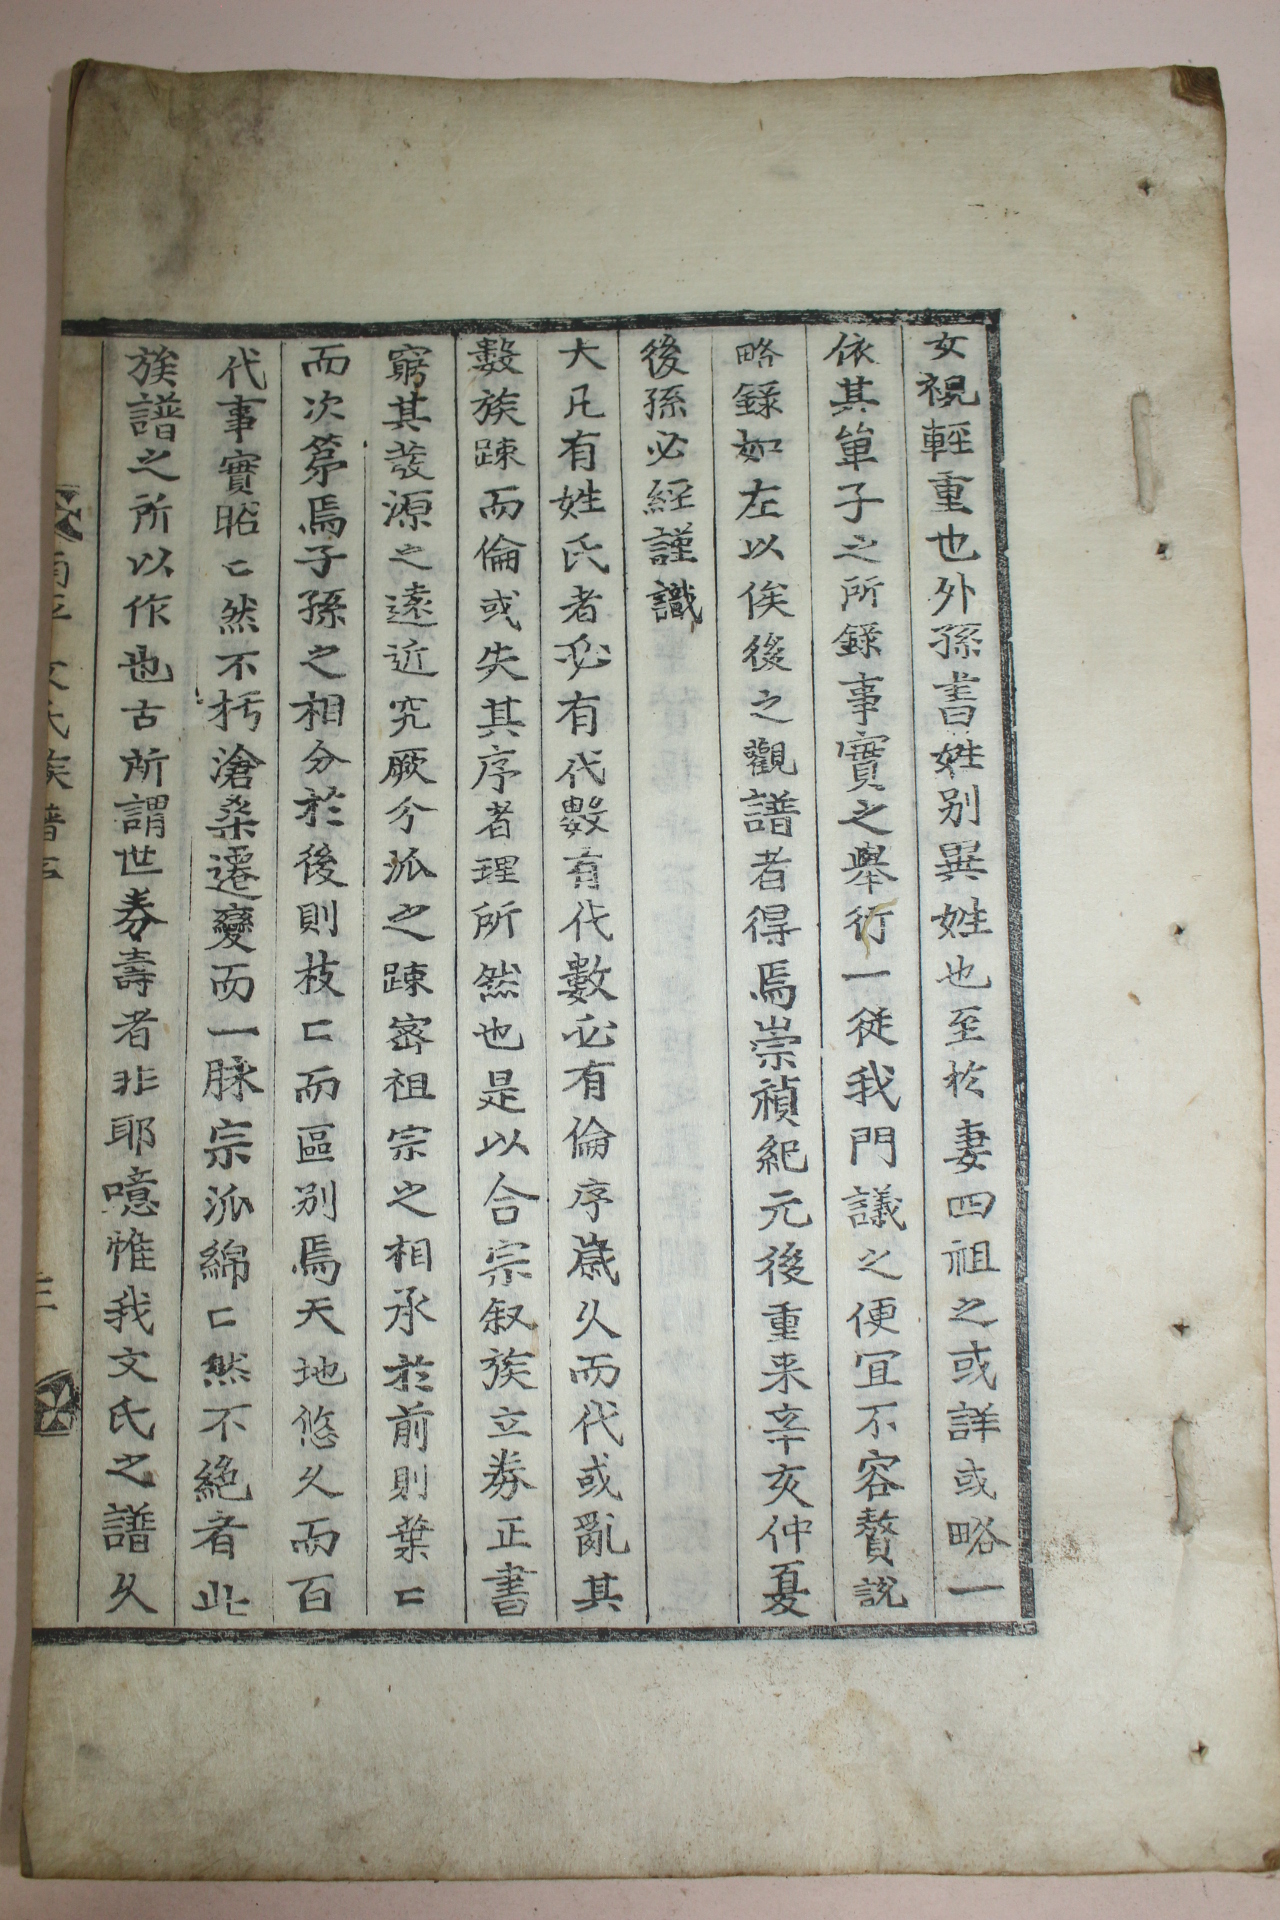 女視輕重也外孫書姓別異姓也至於妻四祖之或詳或略一
依其單子之所錄事實之擧行一從我門議之便宜不容贅說
略錄如左以俟後之觀譜者得焉崇禎紀元後重来辛亥仲夏
後孫必經謹識
大凡有姓氏者必有代數有代數必有倫序歲久而代或亂其
數族踈而倫或失其序者理所然也是以合宗叙族立券正書
窮其發源之遠近究厥分派之踈密祖宗之相承於前則葉匕
而次第焉子孫之相分於後則枝匕而區別焉天地悠久而百
代事實昭匕然不朽滄桑遷變而一脉宗派綿匕然不絶者此
族譜之所以作也古所謂世券壽者非耶噫惟我文氏之譜久
南平文氏族譜序
三